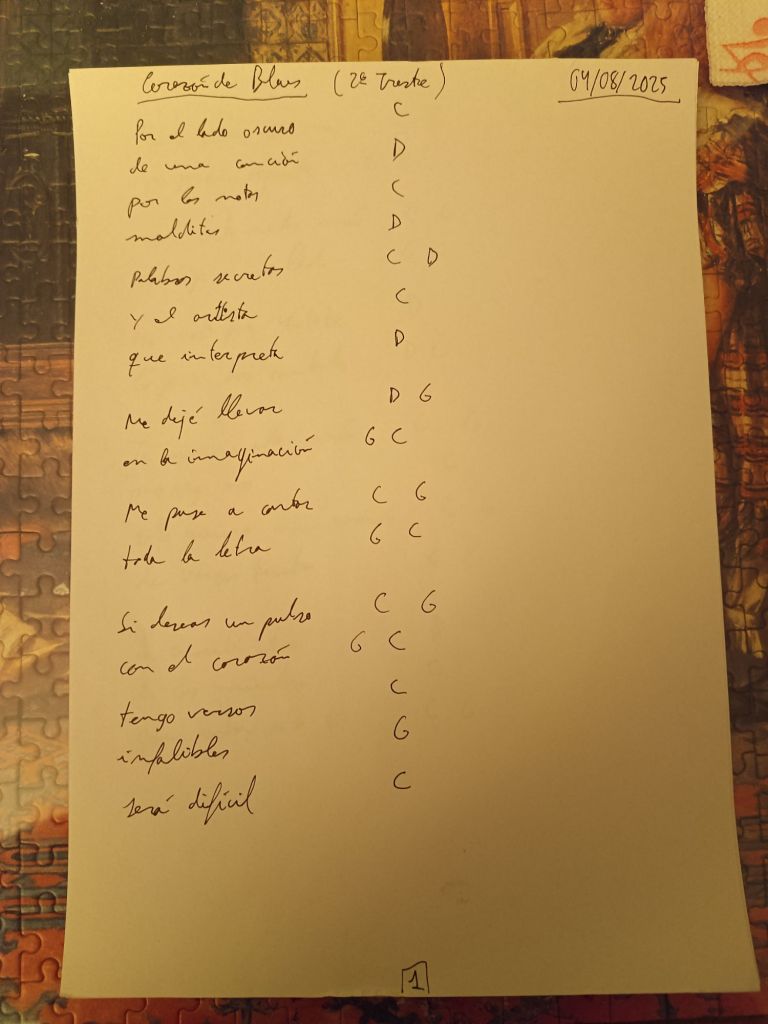 Corazón de Blues (2º Traste) 04/08/2025
Por el lado oscuro C
de una canción D
por las notas C
malditas D
Palabras secretas C D
y el artista C
que interpreta D
Me dejé llevar D G
en la imaginación G C
Me puse a cantar C G
toda la letra G C
Si deseas un pulso C G
con el corazón G C
tengo versos C
infalibles G
será difícil C
1